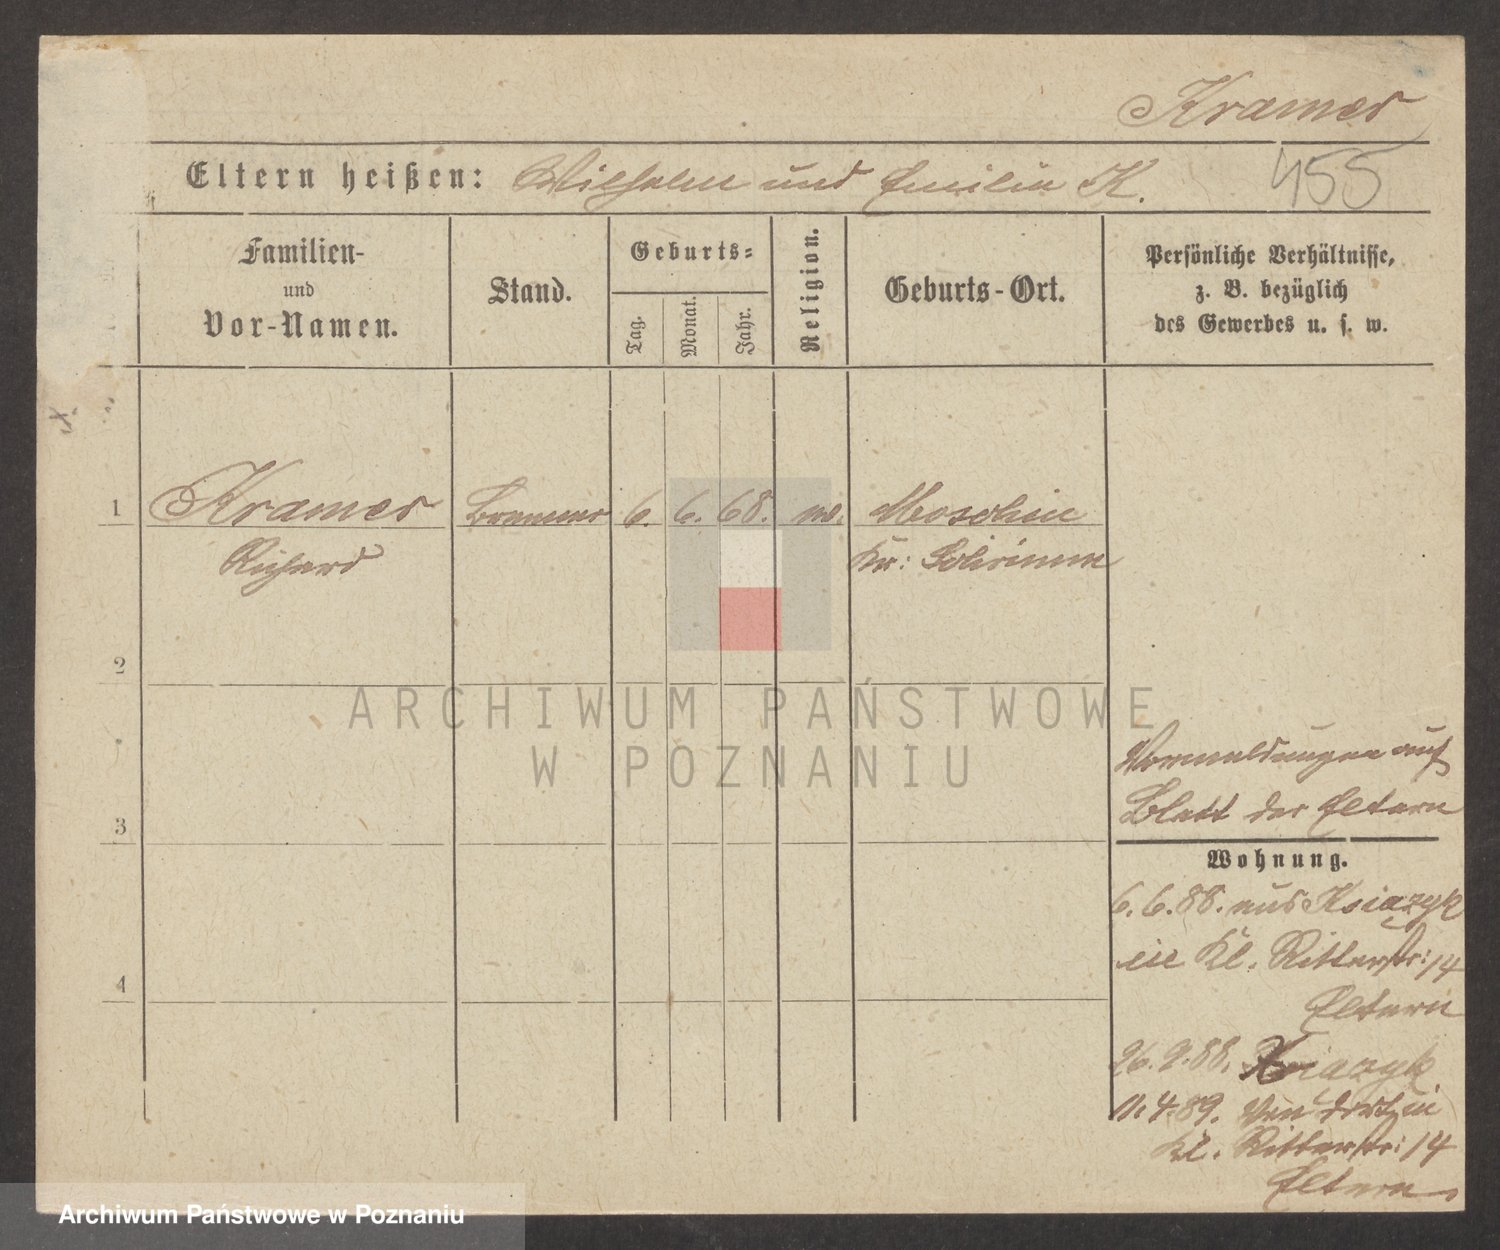 Kramer
455
Eltern heißen: Wilhelm und Emilie K.
Familien-
und
Vor-Namen.
Stand.
Geburts-
Tag.
Monat.
Jahr.
Religion.
Geburts-Ort.
Persönliche Verhältnisse,
z. B. bezüglich
des Gewerbes u. s. w.
1
Kramer
Brenner
6.
6.
68.
ev.
Moschin
Richard
Kr: Schrimm
2
3
4
Vormeldungen auf
Blatt der Eltern
Wohnung.
6. 6. 88. aus Ksiazyk
in Kl. Ritterstr: 14
Eltern
26. 9. 88. Ksiazyk
11. 4. 89. Von dort in
Kl. Ritterstr: 14
Eltern
ARCHIWUM PAŃSTWOWE
W POZNANIU
Archiwum Państwowe w Poznaniu